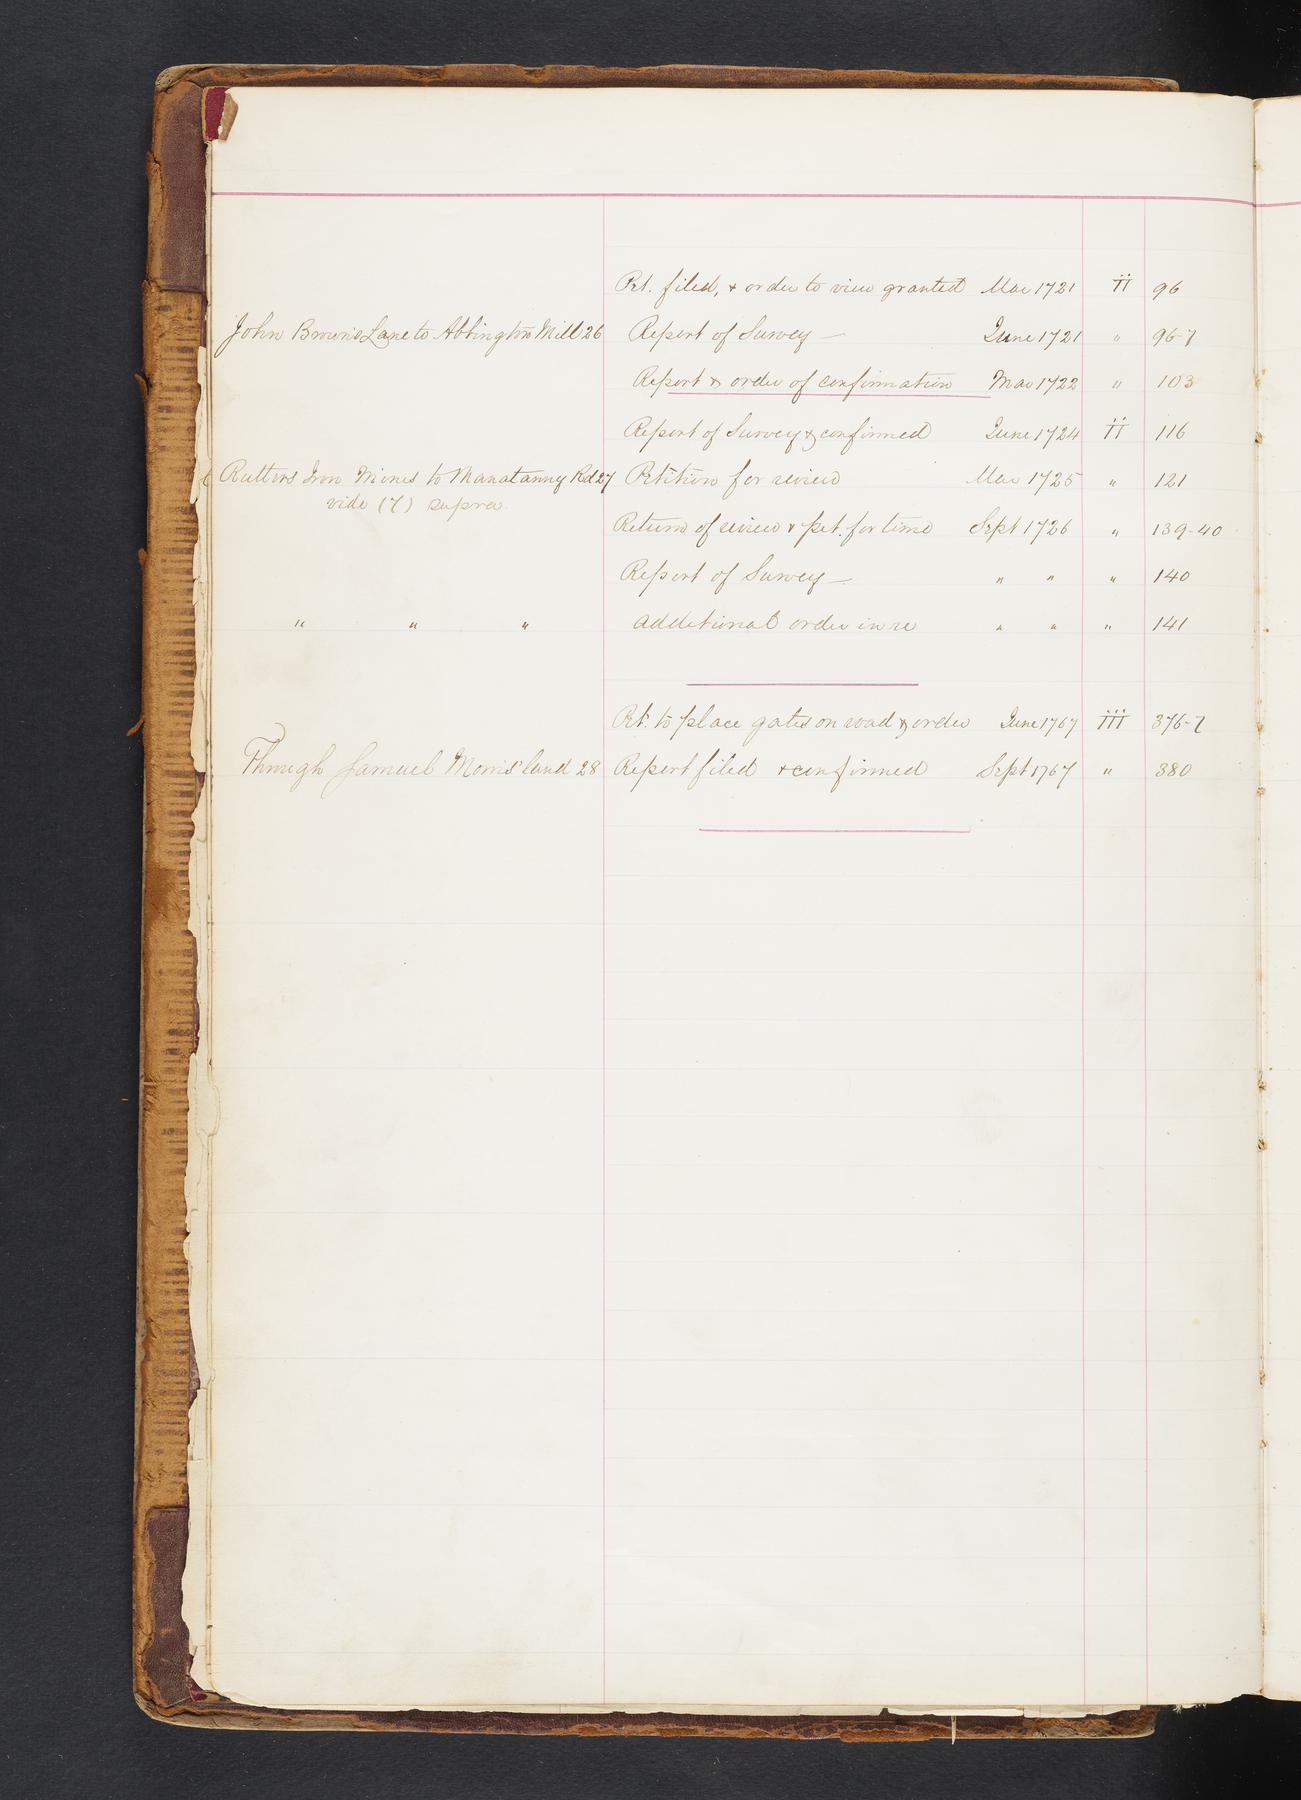 Pet. filed, & order to view granted Mar 1721 ii 96
John Browns Lane to Abbington Mill 26 Report of Survey — June 1721 " 96-7
Report & order of confirmation Mar 1722 " 103
Report of Survey & confirmed June 1724 ii 116
Rutters Iron Mines to Manatanny Rd 27 Petition for review Mar 1725 " 121
vide (7) supra
Return of review & pet. for time Sept 1726 " 139-40
Report of Survey — " " " 140
" " " additional order in re " " " 141
Pet. to place gates on road & order June 1767 iii 376-7
Through Samuel Morris' land 28 Report filed & confirmed Sept 1767 " 380